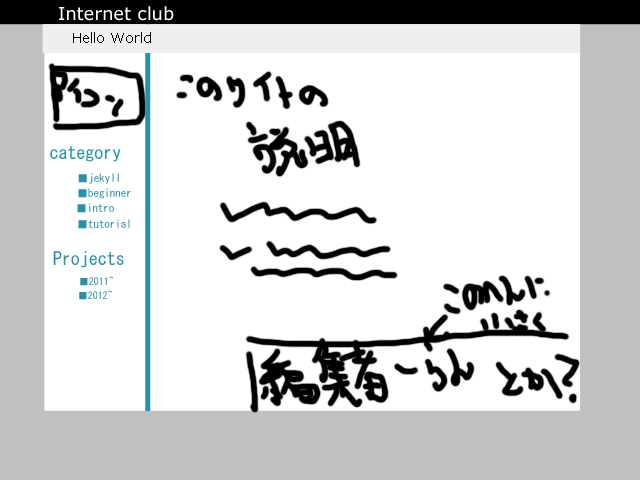 Internet club
Hello World
アイコン
category
■jekyll
■beginner
■intro
■tutorial
Projects
■2011~
■2012~
このサイトの
説明
このへんに
小さく
編集者一らん とか?